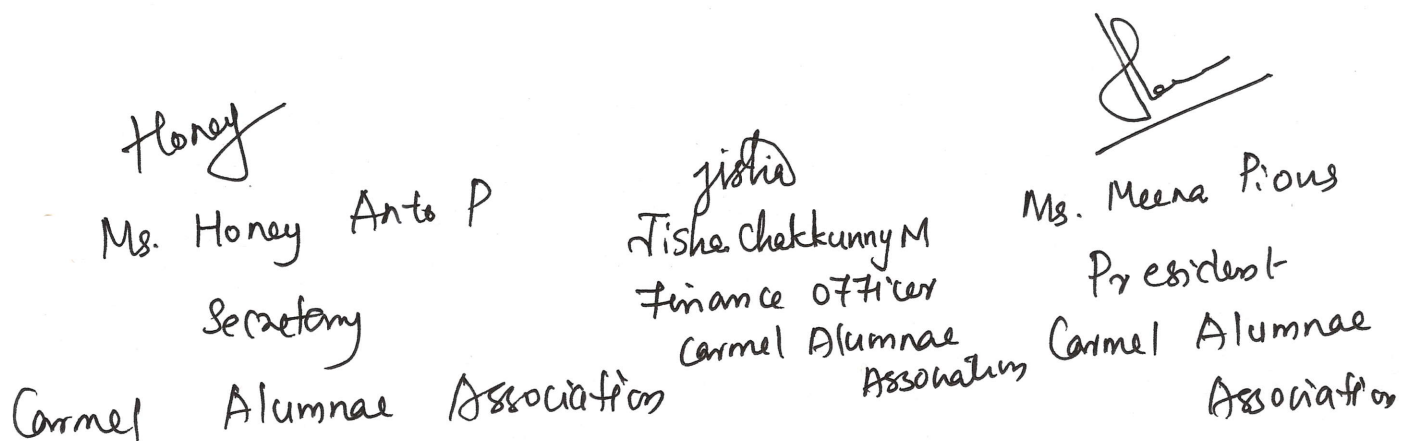 Honey
Ms. Honey Anto P
Secretary
Carmel Alumnae Association
jisha
Jisha Chakkunny M
Finance Officer
Carmel Alumnae
Association
Ms. Meena Pious
President
Carmel Alumnae
Association